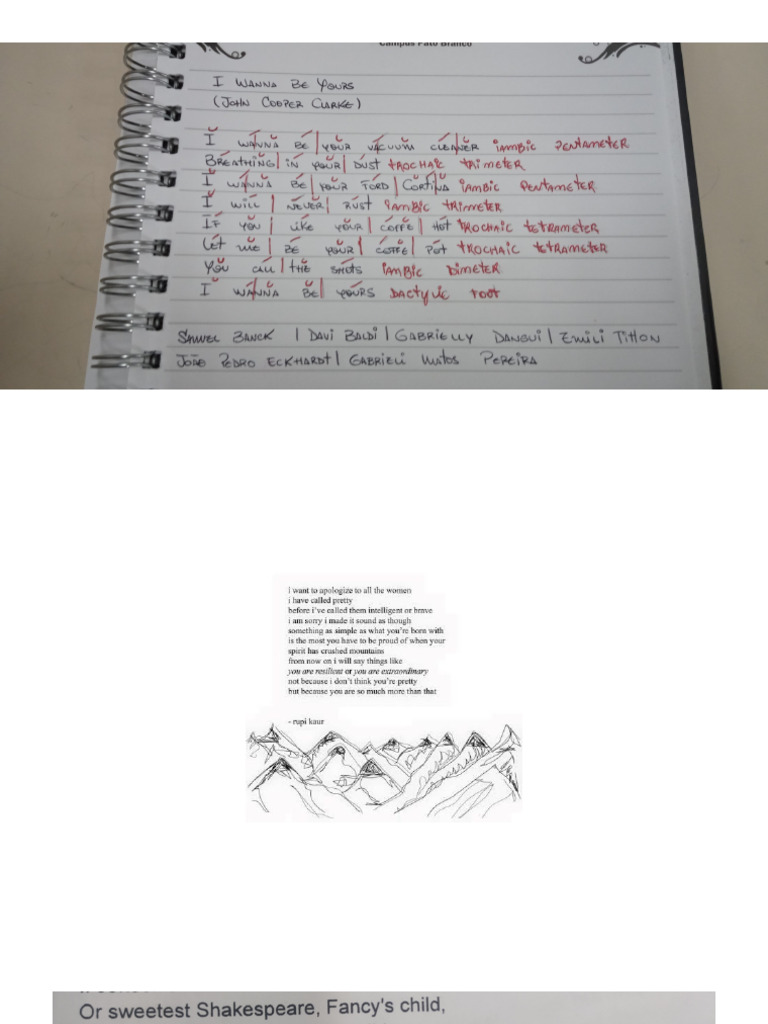 Campus Pato Branco
I WANNA BE YOURS
(JOHN COOPER CLARKE)
I WANNA BE | YOUR VACUUM CLEANER iAMBIC PENTAMETER
BREATHING | IN YOUR | DUST TROCHAIC TRIMETER
I WANNA BE | YOUR FORD | CORTINA iAMBIC PENTAMETER
I WILL | NEVER | RUST iAMBIC TRIMETER
IF YOU | LIKE YOUR | COFFE | HOT TROCHAIC TETRAMETER
LET ME | BE YOUR | COFFE | POT TROCHAIC TETRAMETER
YOU CALL | THE SHOTS iAMBIC DIMETER
I WANNA BE | YOURS DACTYLIC FOOT
SAMUEL BANCK | DAVI BALDI | GABRIELLY DANGUI | EMILI
JOÃO PEDRO ECKHARDT | GABRIELI PEREIRA
i want to apologize to all the women
i have called pretty
before i've called them intelligent or brave
i am sorry i made it sound as though
something as simple as what you're born with
is the most you have to be proud of when your
spirit has crushed mountains
from now on i will say things like
you are resilient or you are extraordinary
not because i don't think you're pretty
but because you are so much more than that
- rupi kaur
Or sweetest Shakespeare, Fancy's child,